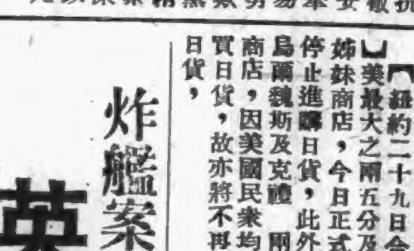 【紐約二十九日
】美最大之兩五分及
姊妹商店，今日正式
停止進購日貨，此外
烏爾魏斯及克禮 兩
商店，因美國民衆均
買日貨，故亦將不再
日貨，
炸艦案
英